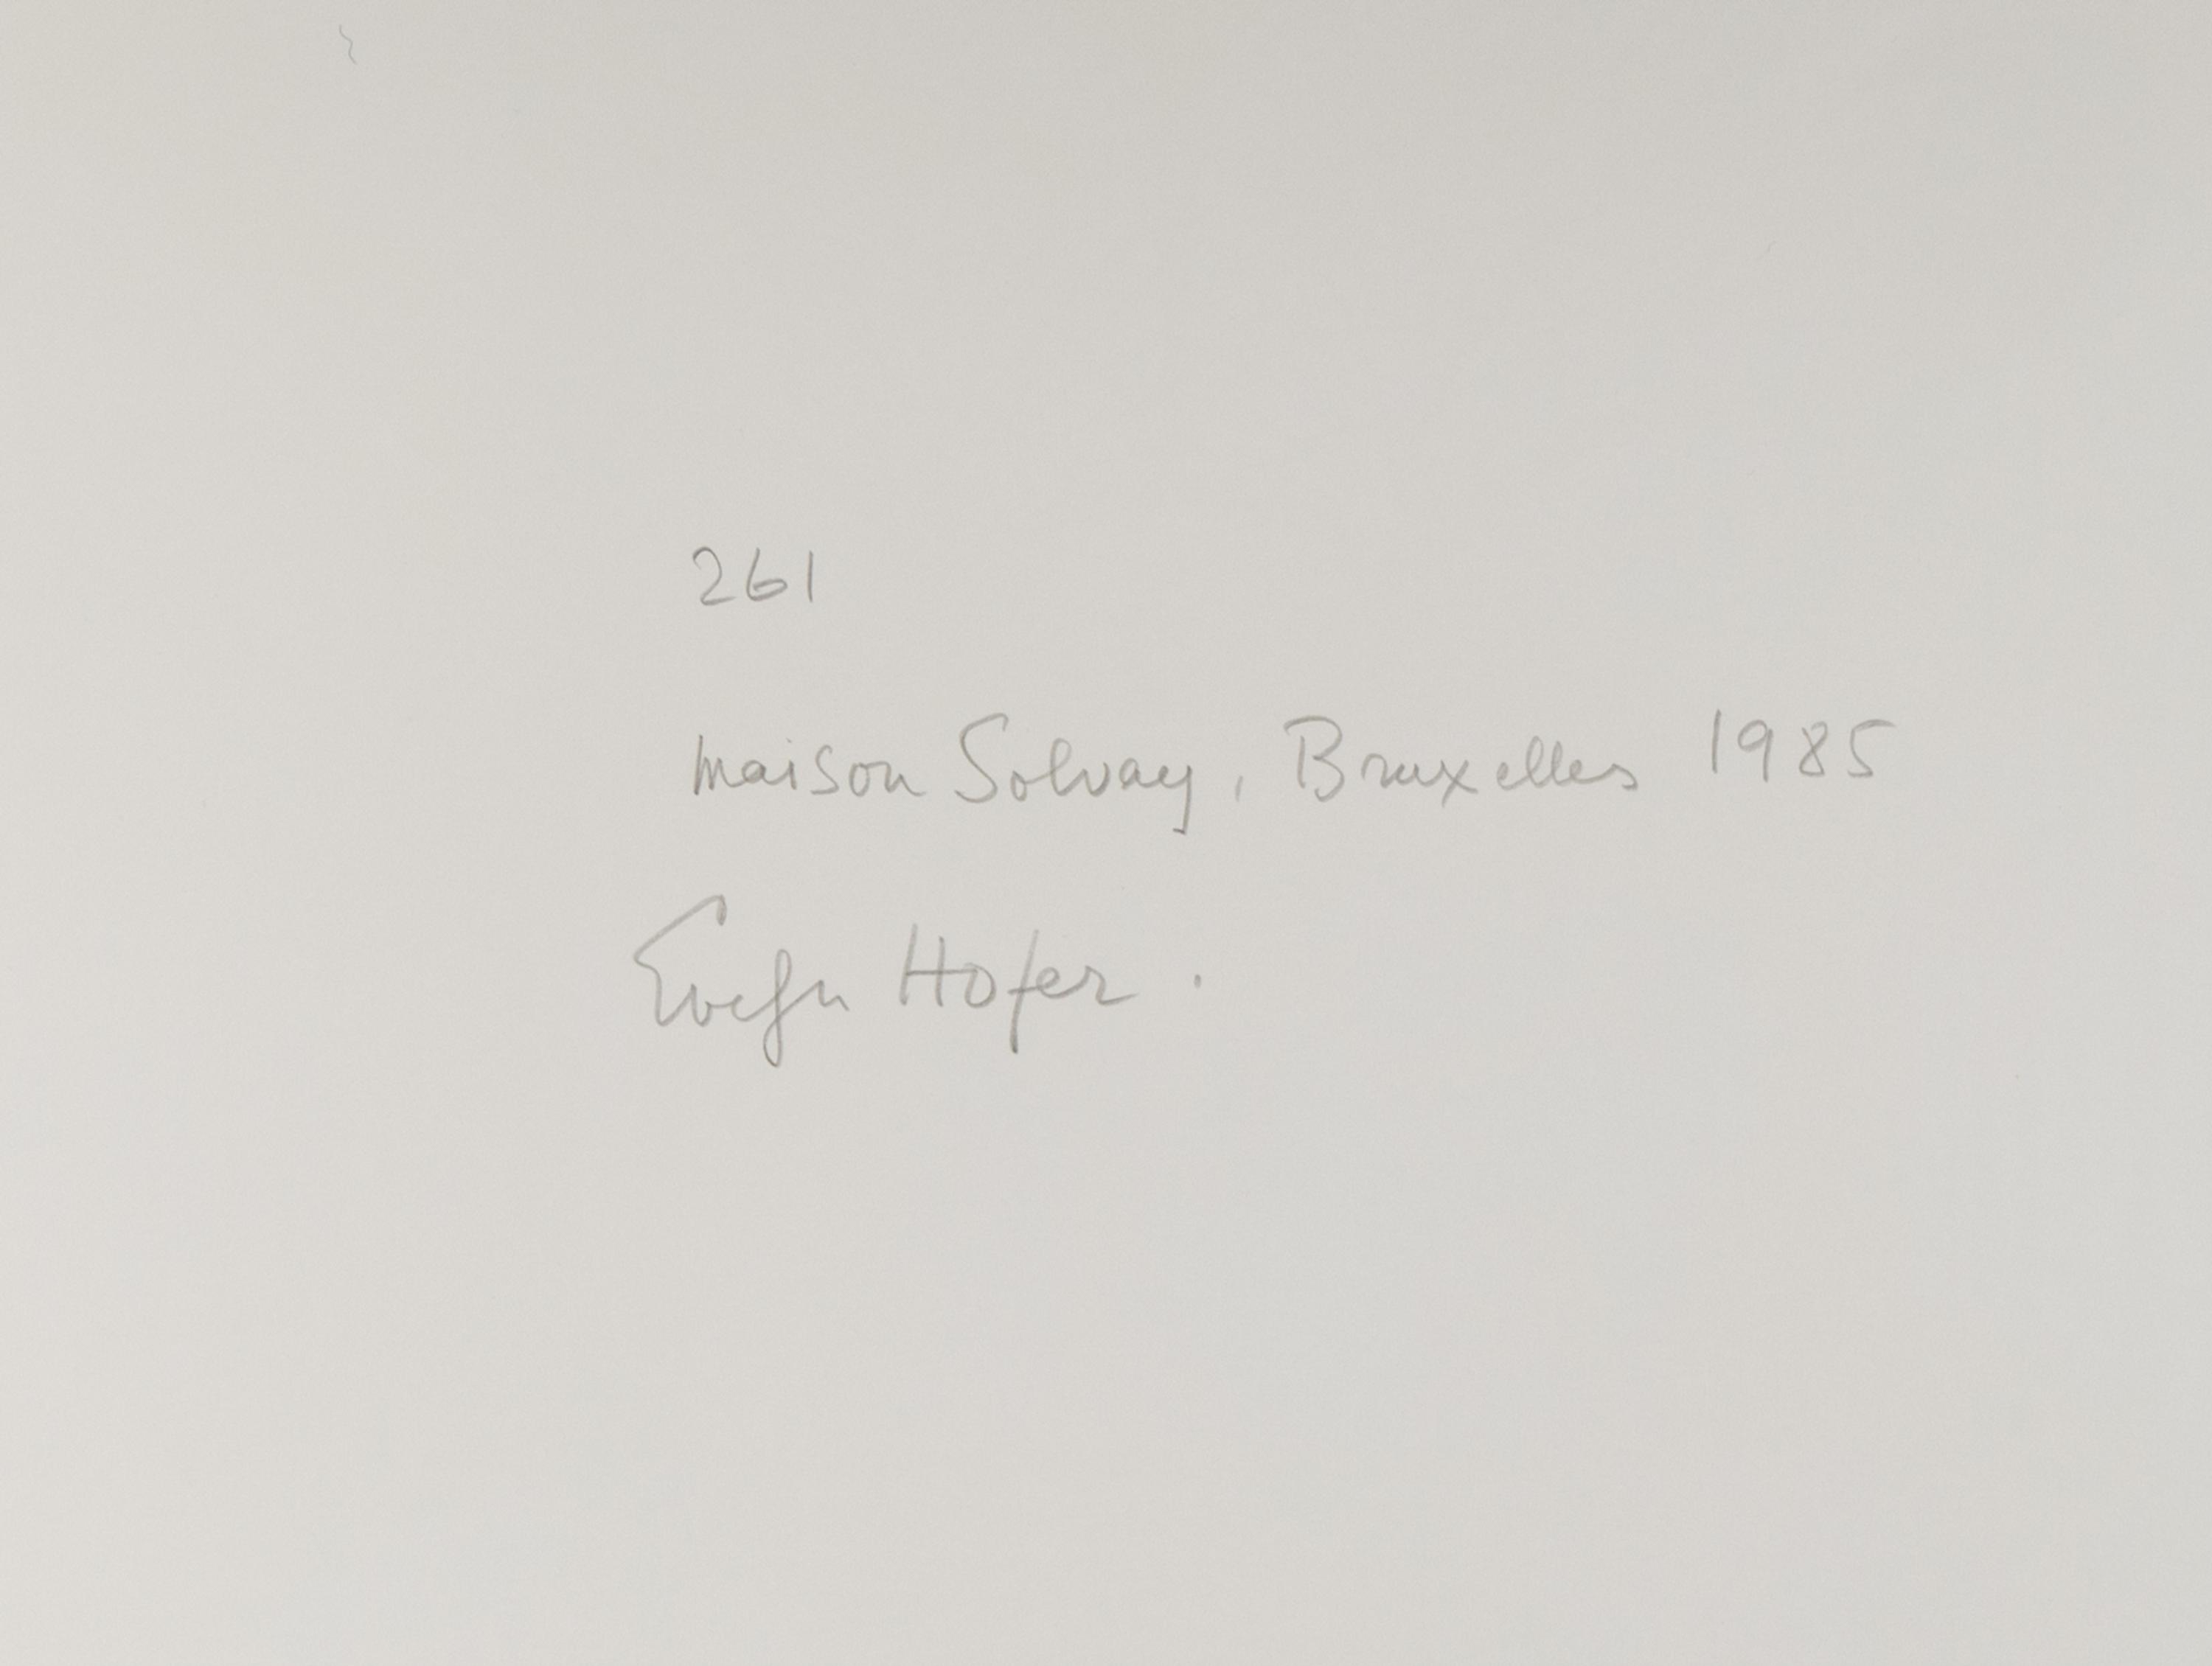 261
Maison Solvay, Bruxelles 1985
Evelyn Hofer.